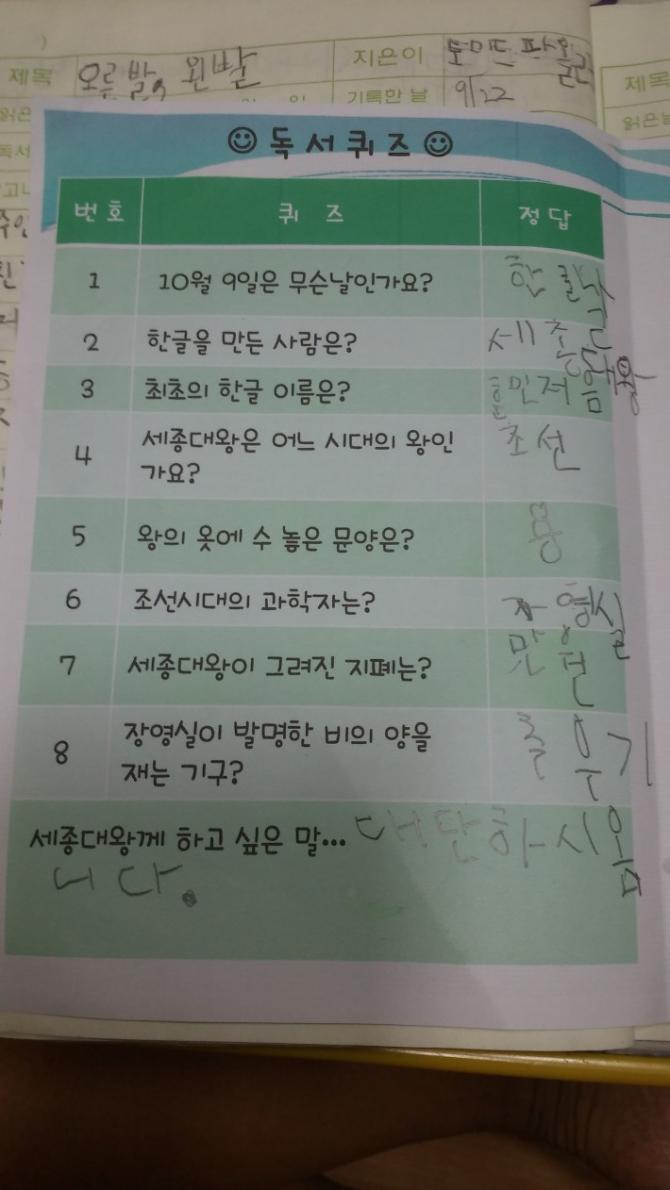 제목 오른발, 왼발 지은이 토미드 파올라
기록한 날 9/22
제목
읽은
읽은날
독서
독서퀴즈
번호 퀴즈 정답
1 10월 9일은 무슨날인가요? 한글날
2 한글을 만든 사람은? 세종대왕
3 최초의 한글 이름은? 훈민저음
4 세종대왕은 어느 시대의 왕인
가요? 조선
5 왕의 옷에 수 놓은 문양은? 용
6 조선시대의 과학자는? 자영실
7 세종대왕이 그려진 지폐는? 만원
8 장영실이 발명한 비의 양을
재는 기구? 측우기
세종대왕께 하고 싶은 말... 대단하시웁
니다.